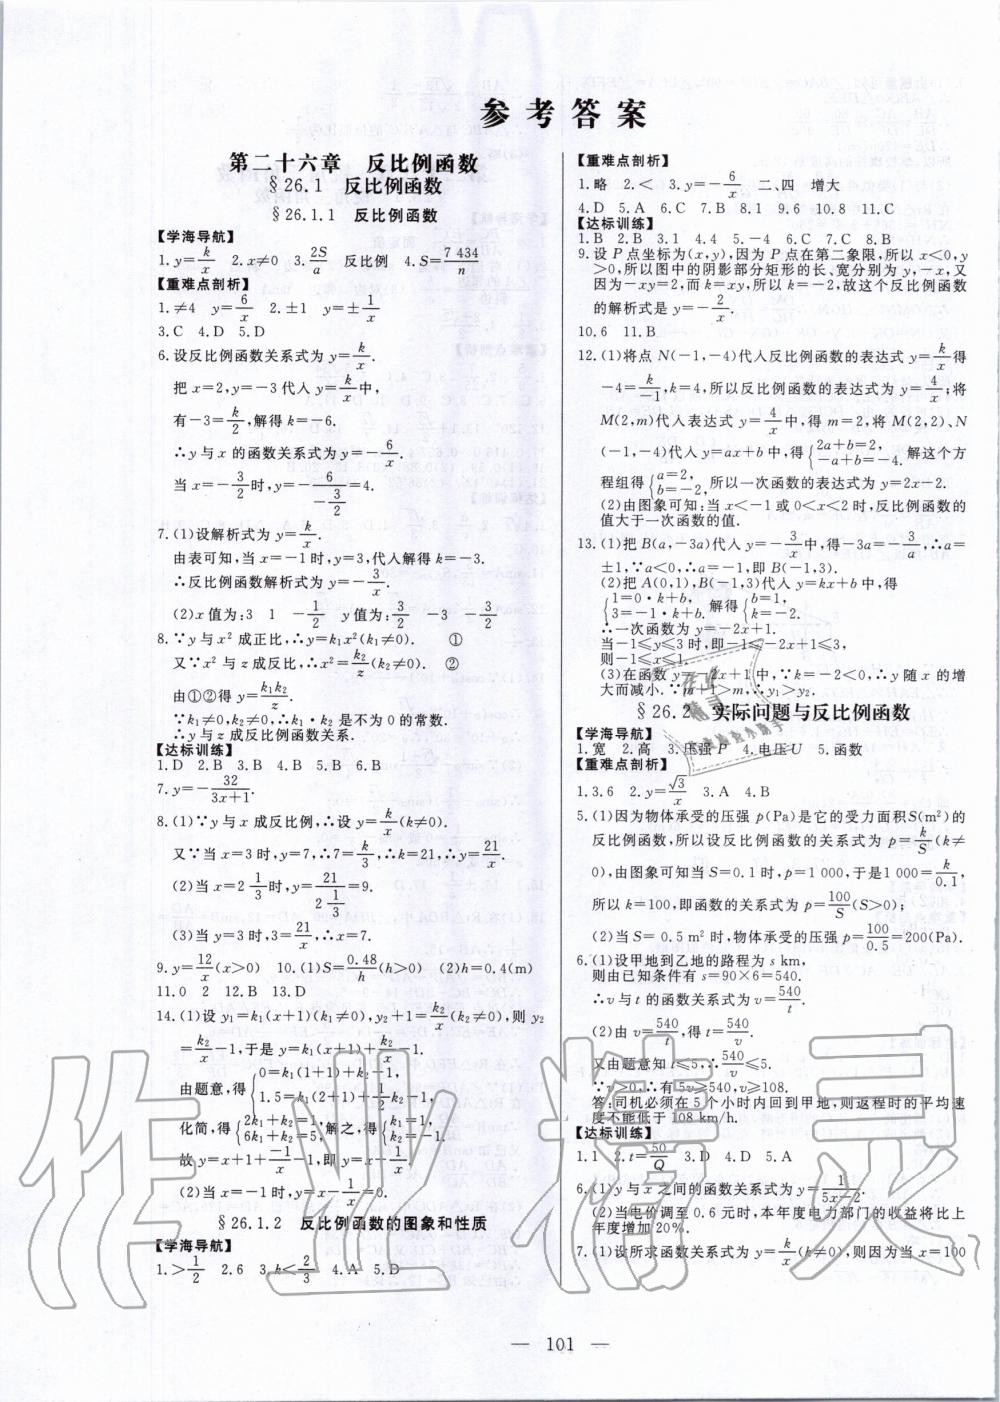 参考答案
第二十六章 反比例函数
§26.1 反比例函数
§26.1.1 反比例函数
【学海导航】
1.y=k/x 2.x≠0 3.2S/a 反比例 4.S=7 434/n
【重难点剖析】
1.≠4 y=6/x 2.±1 y=±1/x
3.C 4.D 5.D
6.设反比例函数关系式为 y=k/x.
把 x=2,y=-3 代人 y=k/x 中,
有-3=k/2,解得 k=-6.
∴y 与 x 的函数关系式为 y=-6/x.
当 x=-3/2 时,y=-6/(-3/2)=4.
7.(1)设解析式为 y=k/x.
由表可知,当 x=-1 时,y=3,代人解得 k=-3.
∴反比例函数解析式为 y=-3/x.
(2)x 值为:3 1 -1/2 y 值为:3/2 -3 -3/2
8.∵y 与 x² 成正比,∴y=k₁x²(k₁≠0). ①
又∵x² 与 z 成反比,∴x²=k₂/z(k₂≠0). ②
由①②得 y=k₁k₂/z.
∵k₁≠0,k₂≠0,∴k₁·k₂ 是不为 0 的常数.
∴y 与 z 成反比例函数关系.
【达标训练】
1.D 2.B 3.B 4.B 5.B 6.B
7.y=-32/(3x+1).
8.(1)∵y 与 x 成反比例,∴设 y=k/x(k≠0).
又∵当 x=3 时,y=7,∴7=k/3,∴k=21,∴y=21/x.
(2)当 x=2 1/3 时,y=21/(2 1/3)=9.
(3)当 y=3 时,3=21/x,∴x=7.
9.y=12/x(x>0) 10.(1)S=0.48/h(h>0) (2)h=0.4(m)
11.0 2 12.B 13.D
14.(1)设 y₁=k₁(x+1)(k₁≠0),y₂+1=k₂/x(k₂≠0),则 y₂
=k₂/x-1,于是 y=k₁(x+1)+k₂/x-1.
由题意,得{0=k₁(1+1)+k₂/1-1, 1.5=k₁(2+1)+k₂/2-1,
化简,得{2k₁+k₂=1, 6k₁+k₂=5. 解之,得{k₁=1, k₂=-1.
故 y=x+1+(-1)/x-1,即 y=x-1/x.
(2)当 x=-1 时,y=x-1/x=0.
§26.1.2 反比例函数的图象和性质
【学海导航】
1.>1/2 2.6 3.k<2/3 4.A 5.D
【重难点剖析】
1.略 2.< 3.y=-6/x 二、四 增大
4.D 5.A 6.C 7.B 8.1 9.6 10.8 11.C
【达标训练】
1.B 2.B 3.1 4.4 5.-4 6.C 7.C 8.B
9.设 P 点坐标为(x,y),因为 P 点在第二象限,所以 x<0,y
>0,所以图中的阴影部分矩形的长、宽分别为 y,-x,又
因为-xy=2,而 k=xy,所以 k=-2,故这个反比例函数
的解析式是 y=-2/x.
10.6 11.B
12.(1)将点 N(-1,-4)代人反比例函数的表达式 y=k/x 得
-4=k/-1,k=4,所以反比例函数的表达式为 y=4/x;将
M(2,m)代人表达式 y=4/x 中,得 m=2,将 M(2,2)、N
(-1,-4)代人 y=ax+b 中,得{2a+b=2, -a+b=-4. 解这个方
程组得{a=2, b=-2, 所以一次函数的表达式为 y=2x-2.
(2)由图象可知:当 x<-1 或 0<x<2 时,反比例函数的
值大于一次函数的值.
13.(1)把 B(a,-3a)代人 y=-3/x 中,得-3a=-3/a,∴a=
±1,∵a<0,∴a=-1,即 B(-1,3).
(2)把 A(0,1),B(-1,3)代人 y=kx+b 中,得
{1=0·k+b, 3=-1·k+b. 解得{b=1, k=-2.
∴一次函数为 y=-2x+1.
当-1≤y≤3 时,即-1≤-2x+1≤3,
则-1≤x≤1.
(3)在函数 y=-2x+1 中,∵k=-2<0,∴y 随 x 的增
大而减小.∵m+1>m,∴y₁>y₂.
§26.2 实际问题与反比例函数
【学海导航】
1.宽 2.高 3.压强 P 4.电压 U 5.函数
【重难点剖析】
1.3.6 2.y=√3/x 3.A 4.B
5.(1)因为物体承受的压强 p(Pa)是它的受力面积S(m²)的
反比例函数,所以设反比例函数的关系式为 p=k/S(k≠
0),由图象可知当 S=0.1 时,p=1 000,于是1 000=k/0.1,
所以 k=100,即函数的关系式为 p=100/S(S>0);
(2)当 S=0.5 m² 时,物体承受的压强 p=100/0.5=200(Pa).
6.(1)设甲地到乙地的路程为 s km,
则由已知条件有 s=90×6=540.
∴v 与 t 的函数关系式为 v=540/t.
(2)由 v=540/t,得 t=540/v.
又由题意知 t≤5,∴540/v≤5.
∵v>0,∴有 5v≥540,v≥108.
答:司机必须在 5 个小时内回到甲地,则返程时的平均速
度不能低于 108 km/h.
【达标训练】
1.1 2.t=50/Q 3.D 4.D 5.A
6.(1)y 与 x 之间的函数关系式为 y=1/(5x-2).
(2)当电价调至 0.6 元时,本年度电力部门的收益将比上
年度增加 20%.
7.(1)设所求函数关系式为 y=k/x(k≠0),则因为当 x=100
— 101 —
作业精灵